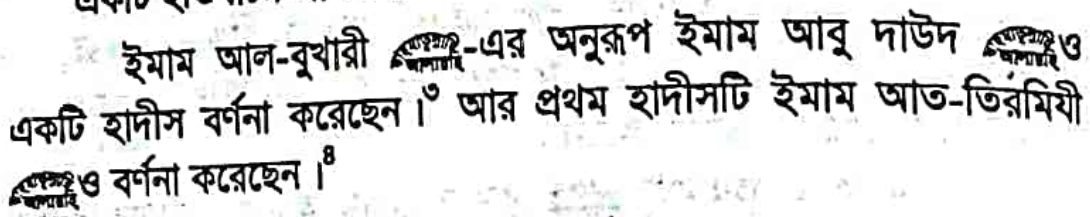 ইমাম আল-বুখারী -এর অনুরূপ ইমাম আবু দাউদ ও
একটি হাদীস বর্ণনা করেছেন।৩ আর প্রথম হাদীসটি ইমাম আত-তিরমিযী
ও বর্ণনা করেছেন।৪